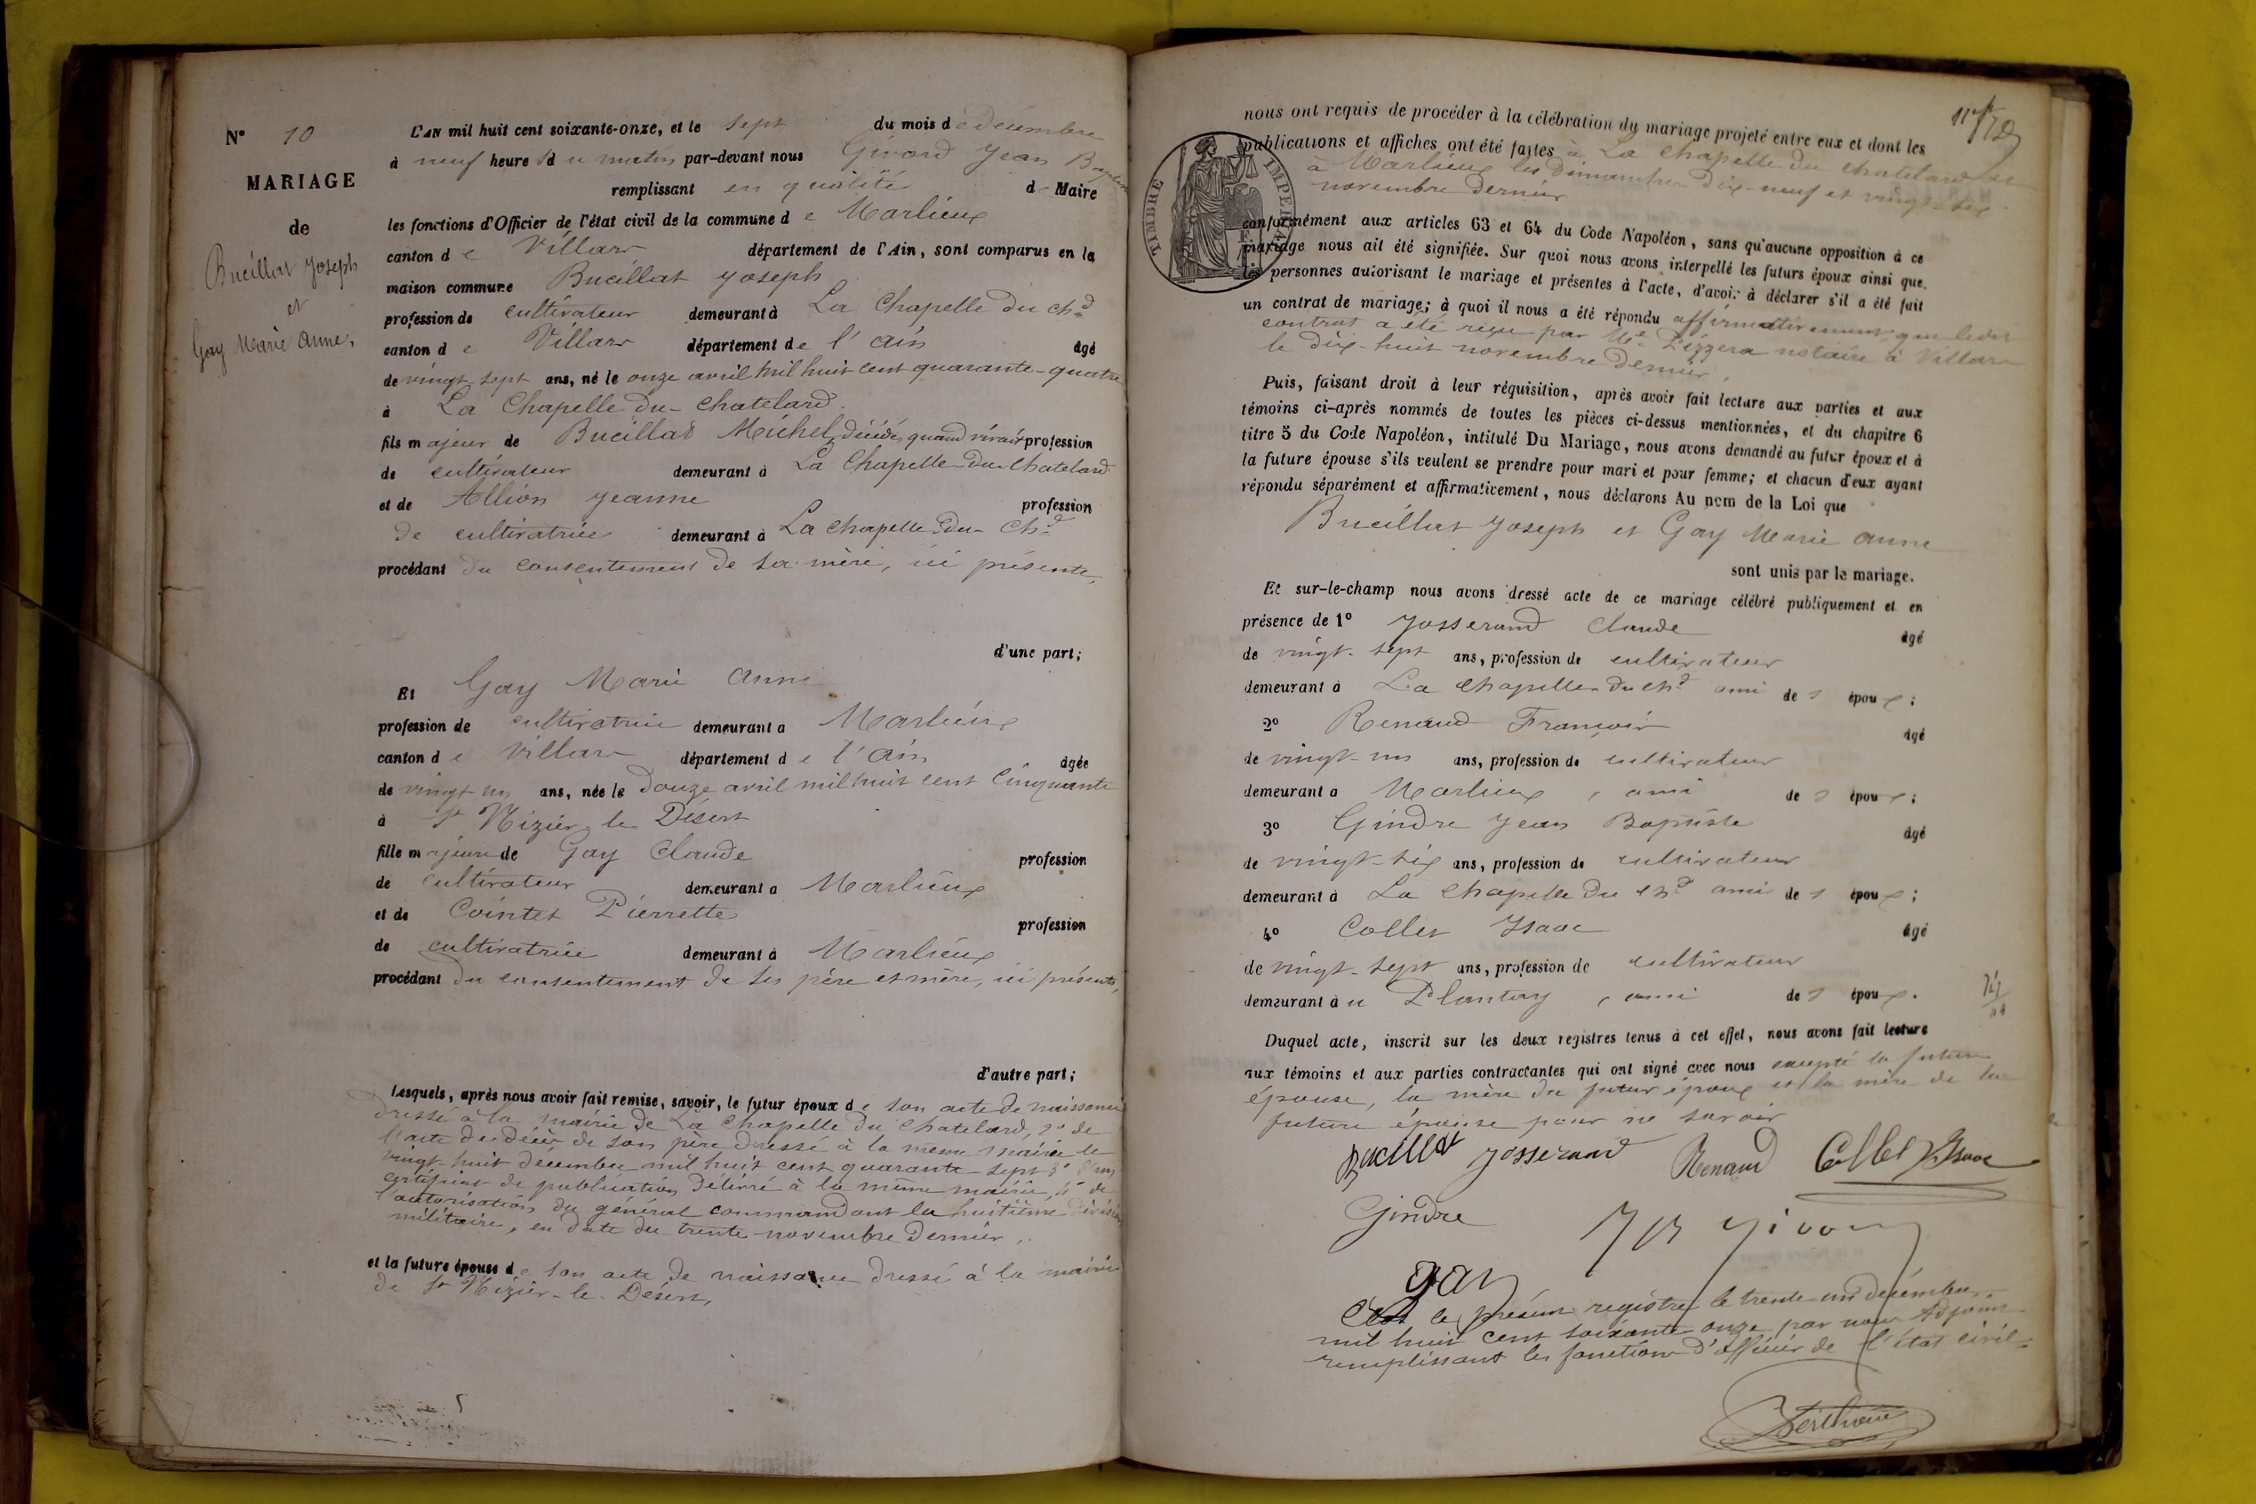 N° 10
MARIAGE
de
Bucillat Joseph
et
Gay Marie Anne.
L'AN mil huit cent soixante-onze, et le sept du mois de décembre
à neuf heures du matin par-devant nous Givord Jean Baptiste
remplissant en qualité de Maire
les fonctions d'Officier de l'état civil de la commune de Marlieux
canton de Villars département de l'Ain, sont comparus en la
maison commune Bucillat Joseph
profession de cultivateur demeurant à La Chapelle du chd
canton de Villars département de l'ain âgé
de vingt-sept ans, né le onze avril mil huit cent quarante-quatre
à La Chapelle-du-Chatelard
fils majeur de Bucillat Michel, décédé, quand vivait profession
de cultivateur demeurant à La Chapelle-du-Chatelard
et de Allion Jeanne profession
de cultivatrice demeurant à La Chapelle-du-Chd
procédant du consentement de sa mère, ici présente,
d'une part;
Et Gay Marie Anne
profession de cultivatrice demeurant à Marlieux
canton de Villars département de l'ain âgée
de vingt un ans, née le douze avril mil huit cent cinquante
à St Nizier le Désert
fille majeure de Gay Claude profession
de cultivateur demeurant à Marlieux
et de Cointet Pierrette profession
de cultivatrice demeurant à Marlieux
procédant du consentement de ses père et mère, ici présents,
d'autre part;
Lesquels, après nous avoir fait remise, savoir, le futur époux de son acte de naissance
dressé à la mairie de La Chapelle du Chatelard, 2° de
l'acte de décès de son père dressé à la même mairie le
vingt-huit décembre mil huit cent quarante-sept 3° d'un
certificat de publication délivré à la même mairie, 4° de
l'autorisation du général commandant la huitième division
militaire, en date du trente novembre dernier,
et la future épouse de son acte de naissance dressé à la mairie
de St Nizier-le-Désert,
nous ont requis de procéder à la célébration du mariage projeté entre eux et dont les
publications et affiches ont été faites à La Chapelle du Chatelard et
à Marlieux les dimanches dix-neuf et vingt-six
novembre dernier
TIMBRE IMPERIAL
conformément aux articles 63 et 64 du Code Napoléon, sans qu'aucune opposition à ce
mariage nous ait été signifiée. Sur quoi nous avons interpellé les futurs époux ainsi que
les personnes autorisant le mariage et présentes à l'acte, d'avoir à déclarer s'il a été fait
un contrat de mariage; à quoi il nous a été répondu affirmativement, que ledit
contrat a été reçu par Me Pézzera notaire à Villars
le dix-huit novembre dernier,
Puis, faisant droit à leur réquisition, après avoir fait lecture aux parties et aux
témoins ci-après nommés de toutes les pièces ci-dessus mentionnées, et du chapitre 6
titre 5 du Code Napoléon, intitulé Du Mariage, nous avons demandé au futur époux et à
la future épouse s'ils veulent se prendre pour mari et pour femme; et chacun d'eux ayant
répondu séparément et affirmativement, nous déclarons Au nom de la Loi que
Bucillat Joseph et Gay Marie Anne
sont unis par le mariage.
Et sur-le-champ nous avons dressé acte de ce mariage célébré publiquement et en
présence de 1° Josserand Claude âgé
de vingt-sept ans, profession de cultivateur
demeurant à La Chapelle du chd ami des époux;
2° Renaud François âgé
de vingt-un ans, profession de cultivateur
demeurant à Marlieux, ami des époux;
3° Gindre Jean Baptiste âgé
de vingt-six ans, profession de cultivateur
demeurant à La Chapelle du chd ami des époux;
4° Collet Isaac âgé
de vingt-sept ans, profession de cultivateur
demeurant au Plantay, ami des époux.
Duquel acte, inscrit sur les deux registres tenus à cet effet, nous avons fait lecture
aux témoins et aux parties contractantes qui ont signé avec nous excepté la future
épouse, la mère du futur époux et la mère de la
future épouse pour ne savoir
Bucillat Josserand Renaud Collet Isaac
Gindre JB Givord
gay
Clos le présent registre le trente un décembre
mil huit cent soixante onze par nous Adjoint
remplissant les fonctions d'officier de l'état civil